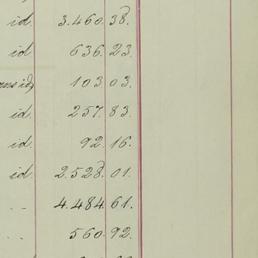 id. 3.460.38.
id 636.23
id 103.03.
id. 257.83
id. 92.16.
id. 2.528.01.
4.484.61.
560.92.